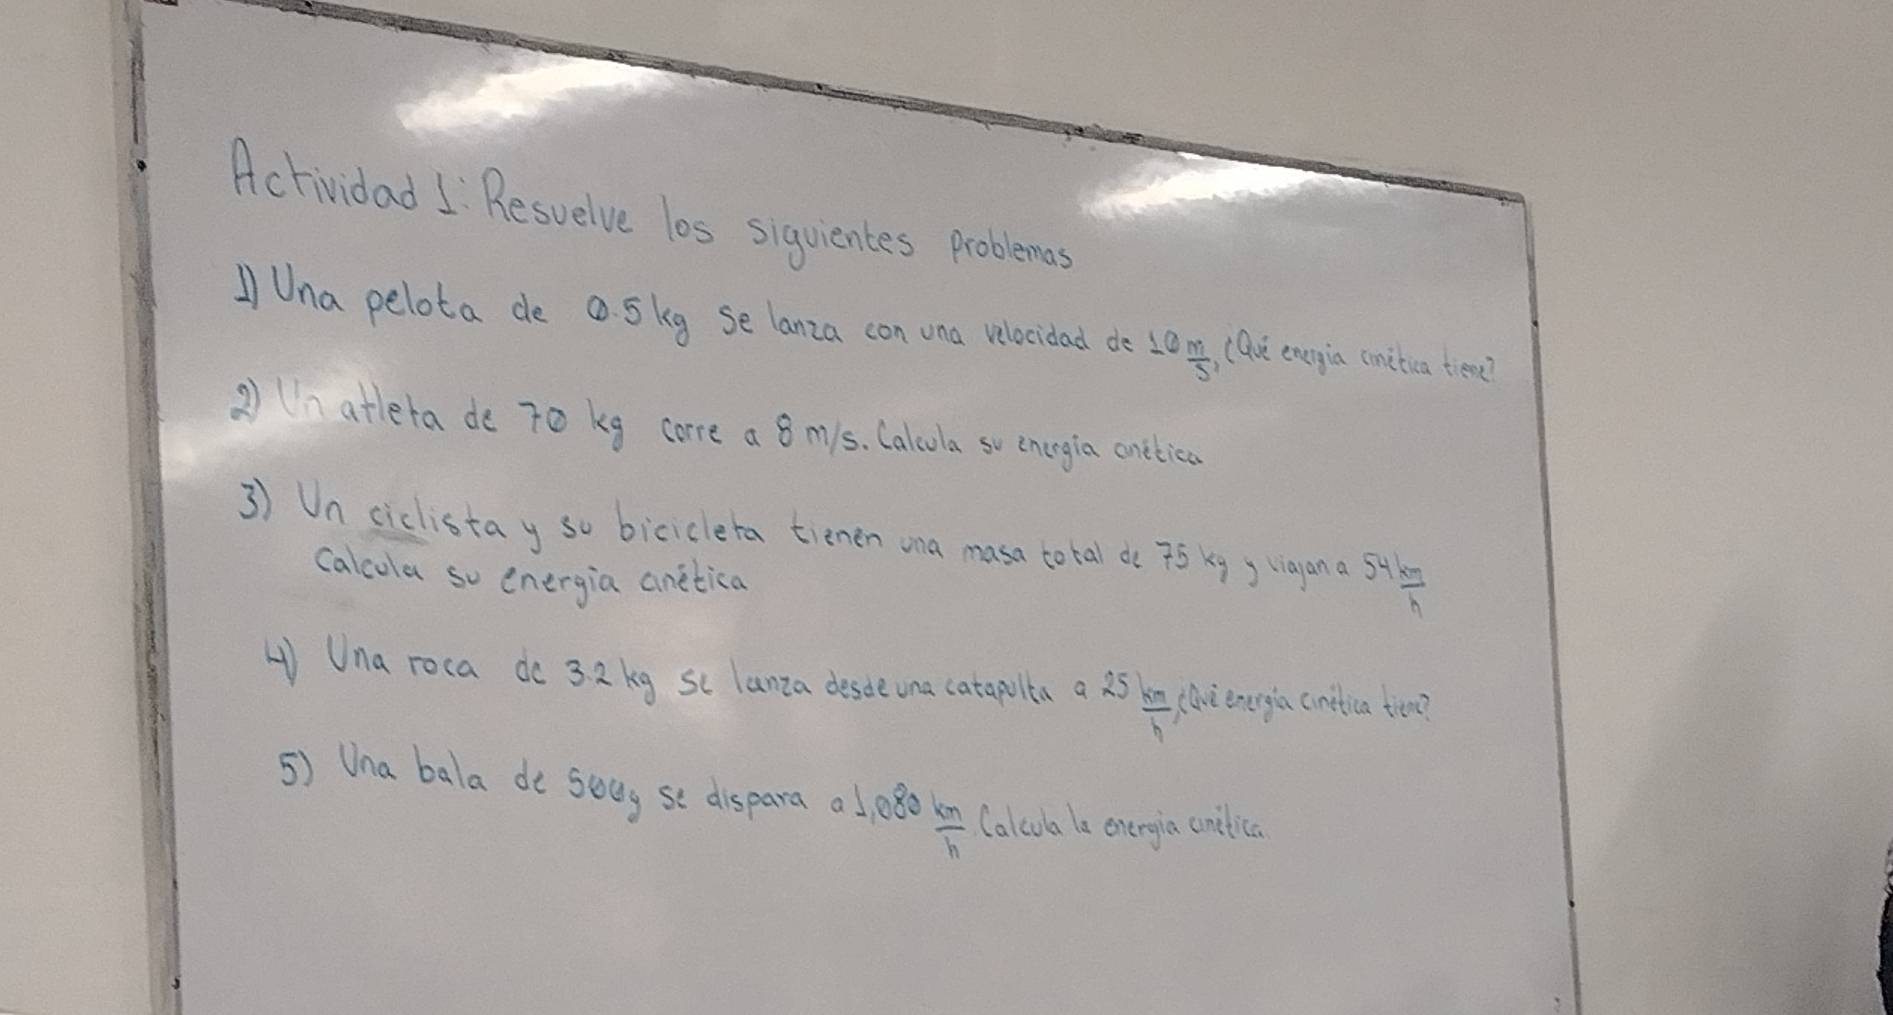 Actividad 1: Resuelve los siguientes problemas
1) Una pelota de 0.5 kg se lanza con una velocidad de 10 m/s, ¿Qué energía cinética tiene?
2) Un atleta de 70 kg corre a 8 m/s. Calcula su energía cinética
3) Un ciclista y su bicicleta tienen una masa total de 75 kg y viajan a 54 km/h
Calcula su energía cinética
4) Una roca de 3.2 kg se lanza desde una catapulta a 25 km/h, ¿Qué energía cinética tiene?
5) Una bala de 500g se dispara a 1,080 km/h. Calcula la energía cinética.